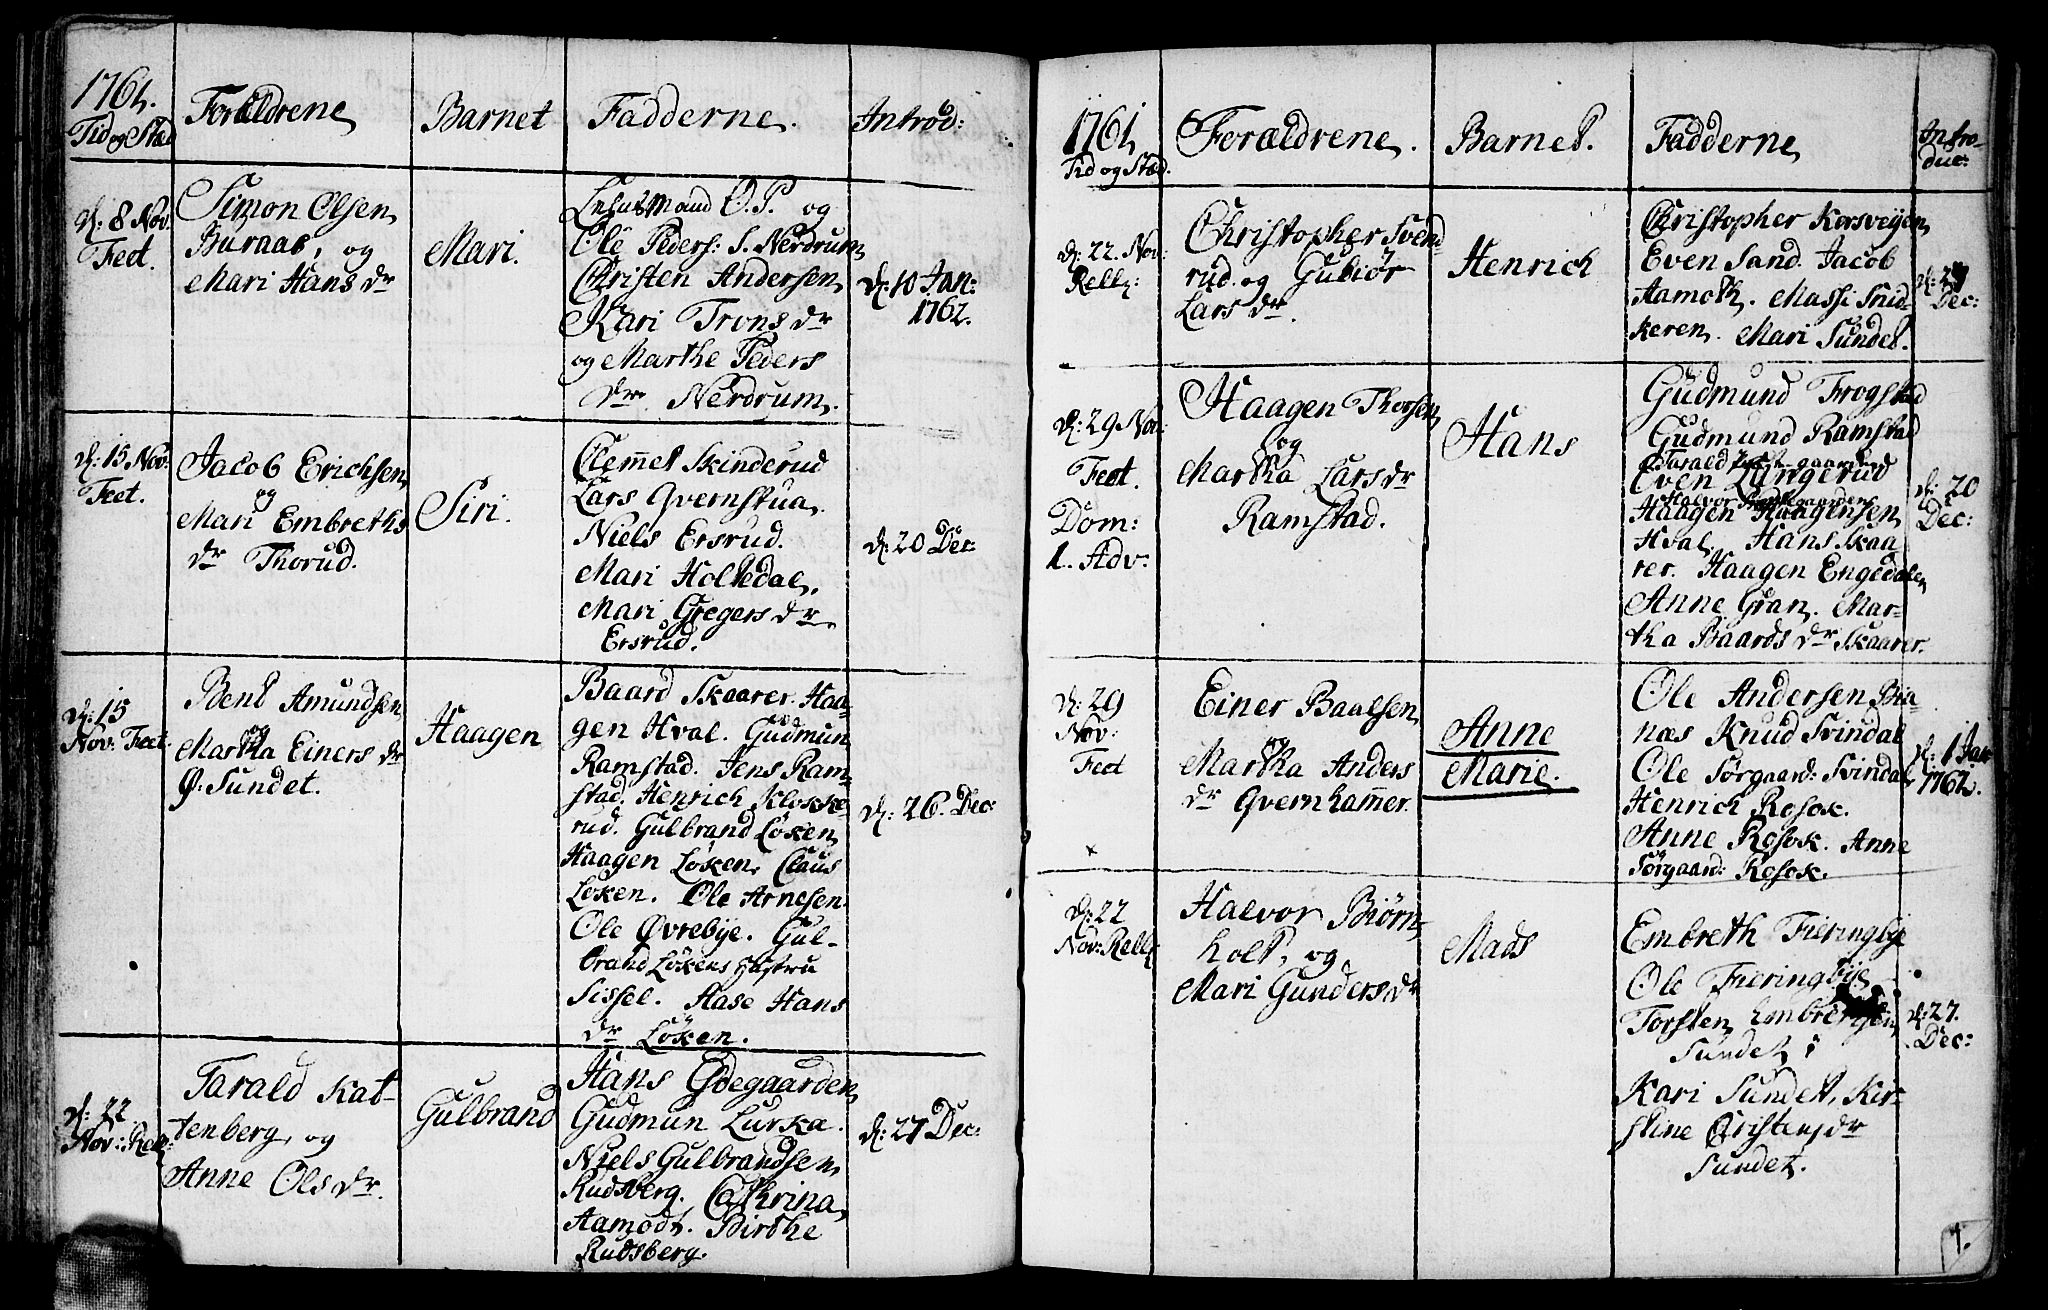 1761.
Tid og Stæd
Forældrene
Barnet
Fadderne.
Introd:
d: 8 Nov.
Feet.
Simon Olsen
Buraas, og
Mari Hans dr
Mari.
Lehnsmand O. P. og
Ole Peders: S. Nerdrum
Christen Andersen
Kari Trons dr
og Marthe Peders
dr Nerdrum.
d: 10 Jan:
1762.
d: 15 Nov:
Feet.
Jacob Erichsen
og
Mari Embreths
dr Thorud.
Siri.
Clemmet Skinderud
Lars Qvernstua.
Niels Ersrud.
Mari Holtedal.
Mari Gregers dr
Ersrud.
d: 20 Dec:
d: 15
Nov: Feet.
Bent Amundsen
og
Martha Einers dr
Ø: Sundet.
Haagen
Baard Skaarer. Haa-
gen Hval. Gudmun
Ramstad. Jens Ram-
stad. Henrich Klokke-
rud. Gulbrand Løken
Haagen Løken. Claus
Løken. Ole Arnesen.
Ole Øvrebye. Gul-
brand Løkens Hustru
Sissel. Aase Hans
dr Løken.
d: 26. Dec:
d: 22
Nov: Rell:
Tarald Kat-
tenberg, og
Anne Ols dr.
Gulbrand
Hans Ødegaarden
Gudmun Lurka.
Niels Gulbrandsen
Rudsberg. Cathrina
Aamodt. Birthe
Rudsberg.
d: 27 Dec:
1761
Tid og Stæd.
Forældrene.
Barnet.
Fadderne
Intro-
duc:
d: 22. Nov:
Rell:
Christopher Svend-
rud og Gubiør
Lars dr.
Henrich
Christopher Korsveyen
Even Sand. Jacob
Aamoth. Massi Snid-
keren. Mari Sundet.
d: 27
Dec:
d: 29 Nov:
Feet.
Dom:
1. Adv:
Haagen Thorsen
og
Martha Lars dr
Ramstad.
Hans
Gudmund Frogstad
Gudmund Ramstad
Tarald
Even Lungerud
Halvor
Haagen Haagensen
Hval. Hans Skaa
rer. Haagen Engedalen
Anne Gran. Mar-
tha Baards dr Skaarer.
d: 20
Dec:
d: 29
Nov:
Feet
Einer Baalsen
og
Martha Anders
dr Qvernhammer.
Anne
Marie.
Ole Andersen Bia-
næs Knud Svindal
Ole Sørgaard: Svindal
Henrich Rosok.
Anne Rosok. Anne
Sørgaard: Rosok.
d: 1 Jan
1762.
d: 22
Nov: Rell:
Halvor Biørn-
holt, og
Mari Gunders dr
Mads
Embreth Fieringbye
Ole Fieringbye
Torsten Embretsen
Sundet
Kari Sundet, Kir-
stine Christens dr
Sundet.
d: 27.
Dec: